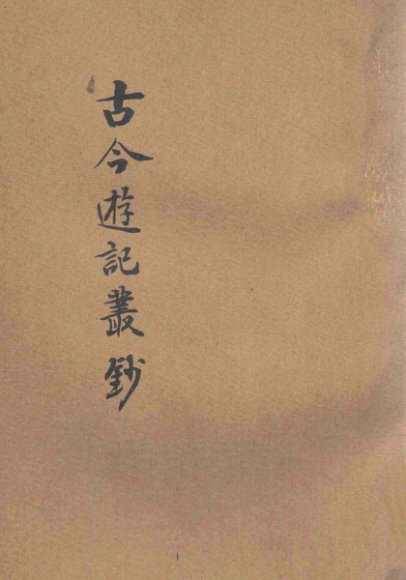 古今遊記叢鈔